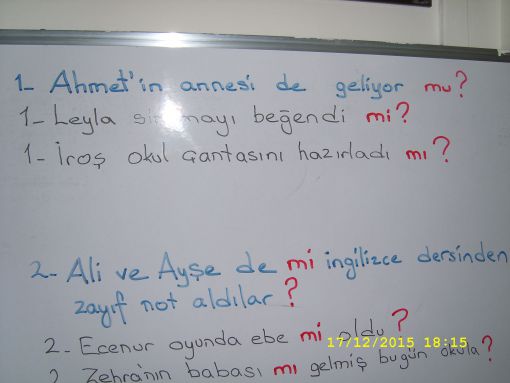 1- Ahmet'in annesi de geliyor mu?
1- Leyla sinemayı beğendi mi?
1- İroş okul çantasını hazırladı mı?
2- Ali ve Ayşe de mi ingilizce dersinden
zayıf not aldılar?
2- Ecenur oyunda ebe mi oldu?
17/12/2015 18:15
2- Zehra'nın babası mı gelmiş bugün okula?